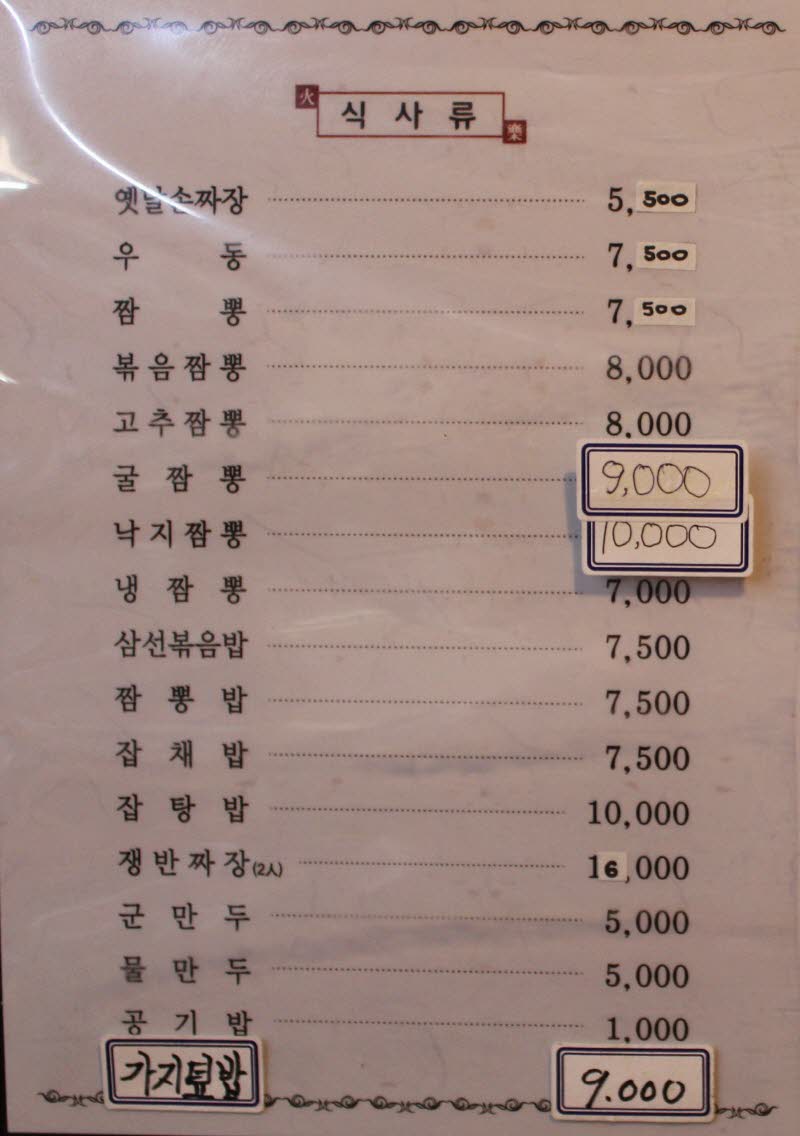 火 식사류 樂
옛날손짜장 5,500
우동 7,500
짬뽕 7,500
볶음짬뽕 8,000
고추짬뽕 8,000
굴짬뽕 9,000
낙지짬뽕 10,000
냉짬뽕 7,000
삼선볶음밥 7,500
짬뽕밥 7,500
잡채밥 7,500
잡탕밥 10,000
쟁반짜장(2人) 16,000
군만두 5,000
물만두 5,000
공기밥 1,000
가지덮밥 9.000